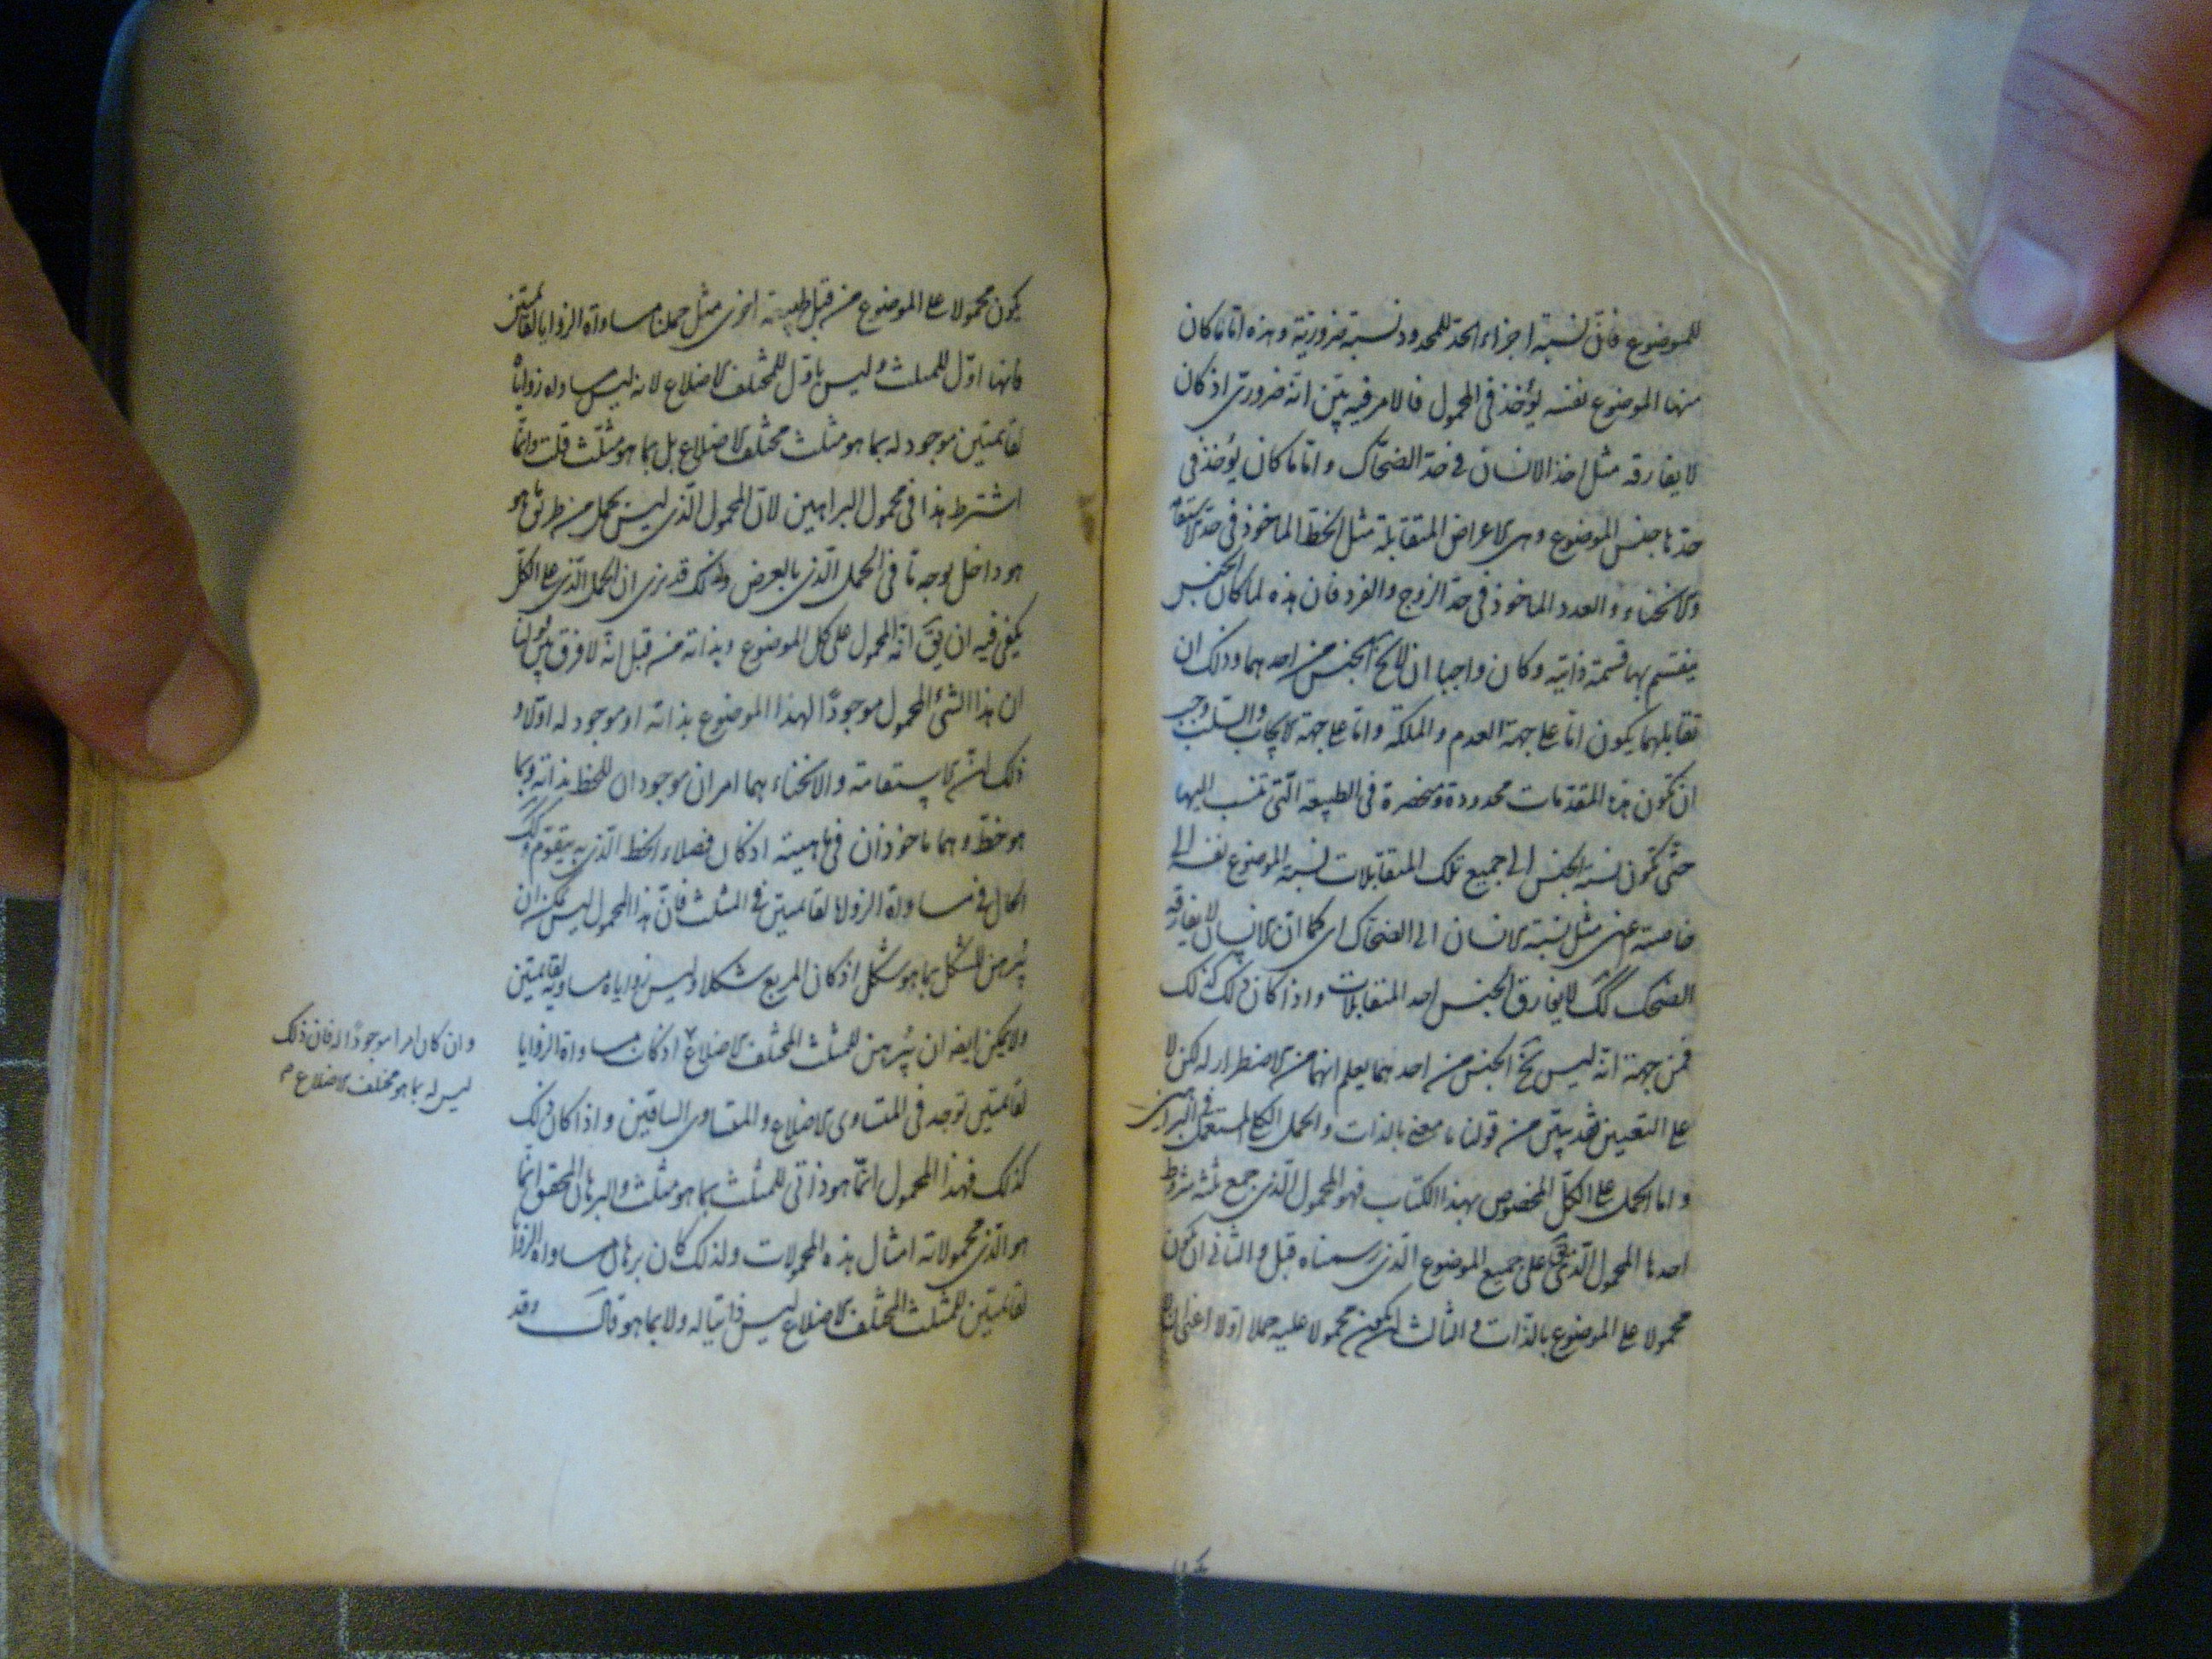 للموضوع فانّ نسبة اجزاء الحدّ للمحدود نسبة ضروريّة وهذه امّا ما كان
منها الموضوع نفسه يؤخذ فى المحمول فالامر فيه بيّن انّه ضرورىّ اذ كان
لا يفارقه مثل اخذ الانسان فى حدّ الضحّاك وامّا ما كان يؤخذ فى
حدّها جنس الموضوع وهى الاعراض المتقابلة مثل الخطّ الماخوذ فى حدّ الاستقامة
والانحناء والعدد الماخوذ فى حدّ الزوج والفرد فان هذه لما كان الجنس
ينقسم بها قسمة ذاتيّة وكان واجبا ان لا يخ الجنس من احدهما وذلك ان
تقابلهما يكون امّا على جهة العدم والملكة وامّا على جهة الايجاب والسلب وجب
ان تكون هذه المقدّمات محدودة ومنحصرة فى الطبيعة الّتى تنسب اليها
حتّى تكون نسبة الجنس الى جميع تلك المتقابلات نسبة الموضوع نفسه الى
خاصته اعنى مثل نسبة الانسان الى الضحّاك اى كما انّ الانسان لا يفارقه
الضحك كك لا يفارق الجنس احد المتقابلات واذا كان ذلك كذلك
فمن جهة انّه ليس يخ الجنس من احدهما يعلم انهما من الاضطرار له لكن لا
على التعيين فقد تبيّن من قولنا ما معنى بالذات والحمل الكلى المستعمل فى البراهين
وامّا الحمل على الكلّ المخصوص بهذا الكتاب فهو المحمول الّذى جمع ثلثة شروط
احدها المحمول الّذى على جميع الموضوع الّذى رسمناه قبل والثانى ان يكون
محمولا على الموضوع بالذّات والثالث ان يكون محمولا عليه حملا اوّلا اعنى ان لا
يكون
يكون محمولا على الموضوع من قبل طبيعة اخرى مثل حملنا مساواة الزوايا لقائمتين
فانها اوّل للمثلث وليس باوّل للمختلف الاضلاع لانه ليس مساواه زواياه
لقائمتين موجود له بما هو مثلث مختلف الاضلاع بل بما هو مثلّث قلت وانّما
اشترط هذا فى محمول البراهين لانّ المحمول الّذى ليس يحمل من طريق ما هو
هو داخل بوجه ما فى الحمل الّذى بالعرض ولذلك قد نرى ان الحمل الّذى على الكلّ
يكفى فيه ان يقَ انّه المحمول على كل الموضوع وبذاته من قبل انّه لا فرق بين قولنا
ان هذا الشئ المحمول موجودًا لهذا الموضوع بذاته او موجود له اوّلا و
ذلك انّ الاستقامة والانحناء هما امران موجودان للخط بذاته وبما
هو خطّ وهما ماخوذان فى ماهيته اذ كان فصلاء الخط الّذى به يتقوّم وكك
الحال فى مساواة الزوايا لقائمتين فى المثلث فانّ هذا المحمول ليس يمكن ان
يُبرهن للشكل بما هو شكل اذ كان المربع شكلا وليس زواياه مساوية لقائمتين
ولا يمكن ايضا ان يُبرهن للمثلث المختلف الاضلاع اذ كان مساواة الزوايا
لقائمتين توجد فى المتساوى الاضلاع والمتساوى الساقين واذا كان ذلك
كذلك فهذا المحمول انّما هو ذاتى للمثلث بما هو مثلّث والبرهان المحقق انّما
هو الّذى محمولاته امثال هذه المحمولات ولذلك كان برهان مساواه الزوايا
لقائمتين للمثلث المختلف الاضلاع ليس ذاتيا له ولا بما هو قال وقد
وان كان امرا موجودًا له فان ذلك
ليس له بما هو مختلف الاضلاع م